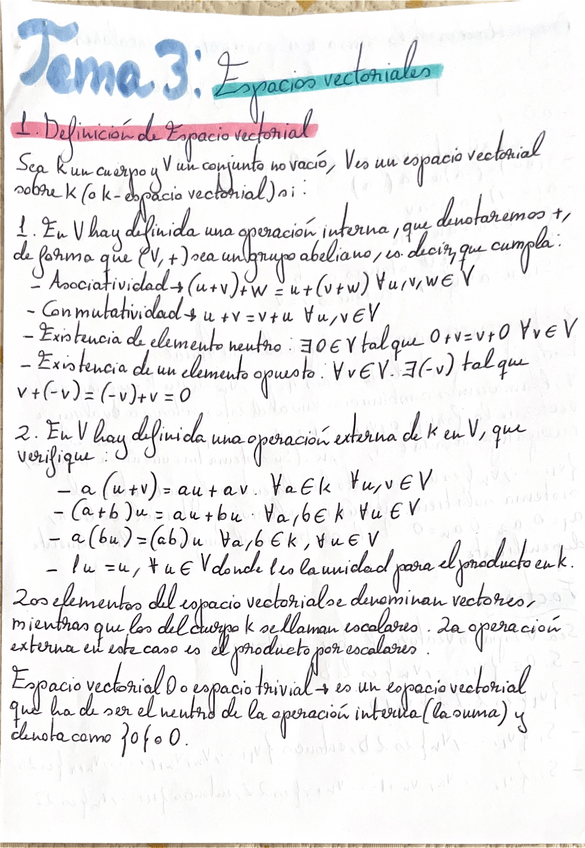 Tema 3: Espacios vectoriales
1. Definición de Espacio vectorial
Sea K un cuerpo y V un conjunto no vació, V es un espacio vectorial
sobre K (o k-espacio vectorial) si:
1. En V hay definida una operación interna, que denotaremos +,
de forma que (V,+) sea un grupo abeliano, es decir, que cumpla:
- Asociatividad → (u+v)+w = u+(v+w) ∀u,v,w∈V
- Conmutatividad → u+v=v+u ∀u,v∈V
- Existencia de elemento neutro: ∃0∈V tal que 0+v=v+0 ∀v∈V
- Existencia de un elemento opuesto: ∀v∈V ∃(-v) tal que
v+(-v)=(-v)+v=0
2. En V hay definida una operación externa de k en V, que
verifique:
- a(u+v)=au+av. ∀a∈k ∀u,v∈V
- (a+b)u=au+bu ∀a,b∈k ∀u∈V
- a(bu)=(ab)u ∀a,b∈k, ∀u∈V
- 1u=u, ∀u∈V donde 1 es la unidad para el producto en k.
Los elementos del espacio vectorial se denominan vectores,
mientras que los del cuerpo k se llaman escalares. La operación
externa en este caso es el producto por escalares.
Espacio vectorial 0 o espacio trivial → es un espacio vectorial
que ha de ser el neutro de la operación interna (la suma) y
denota como }0{ o 0.